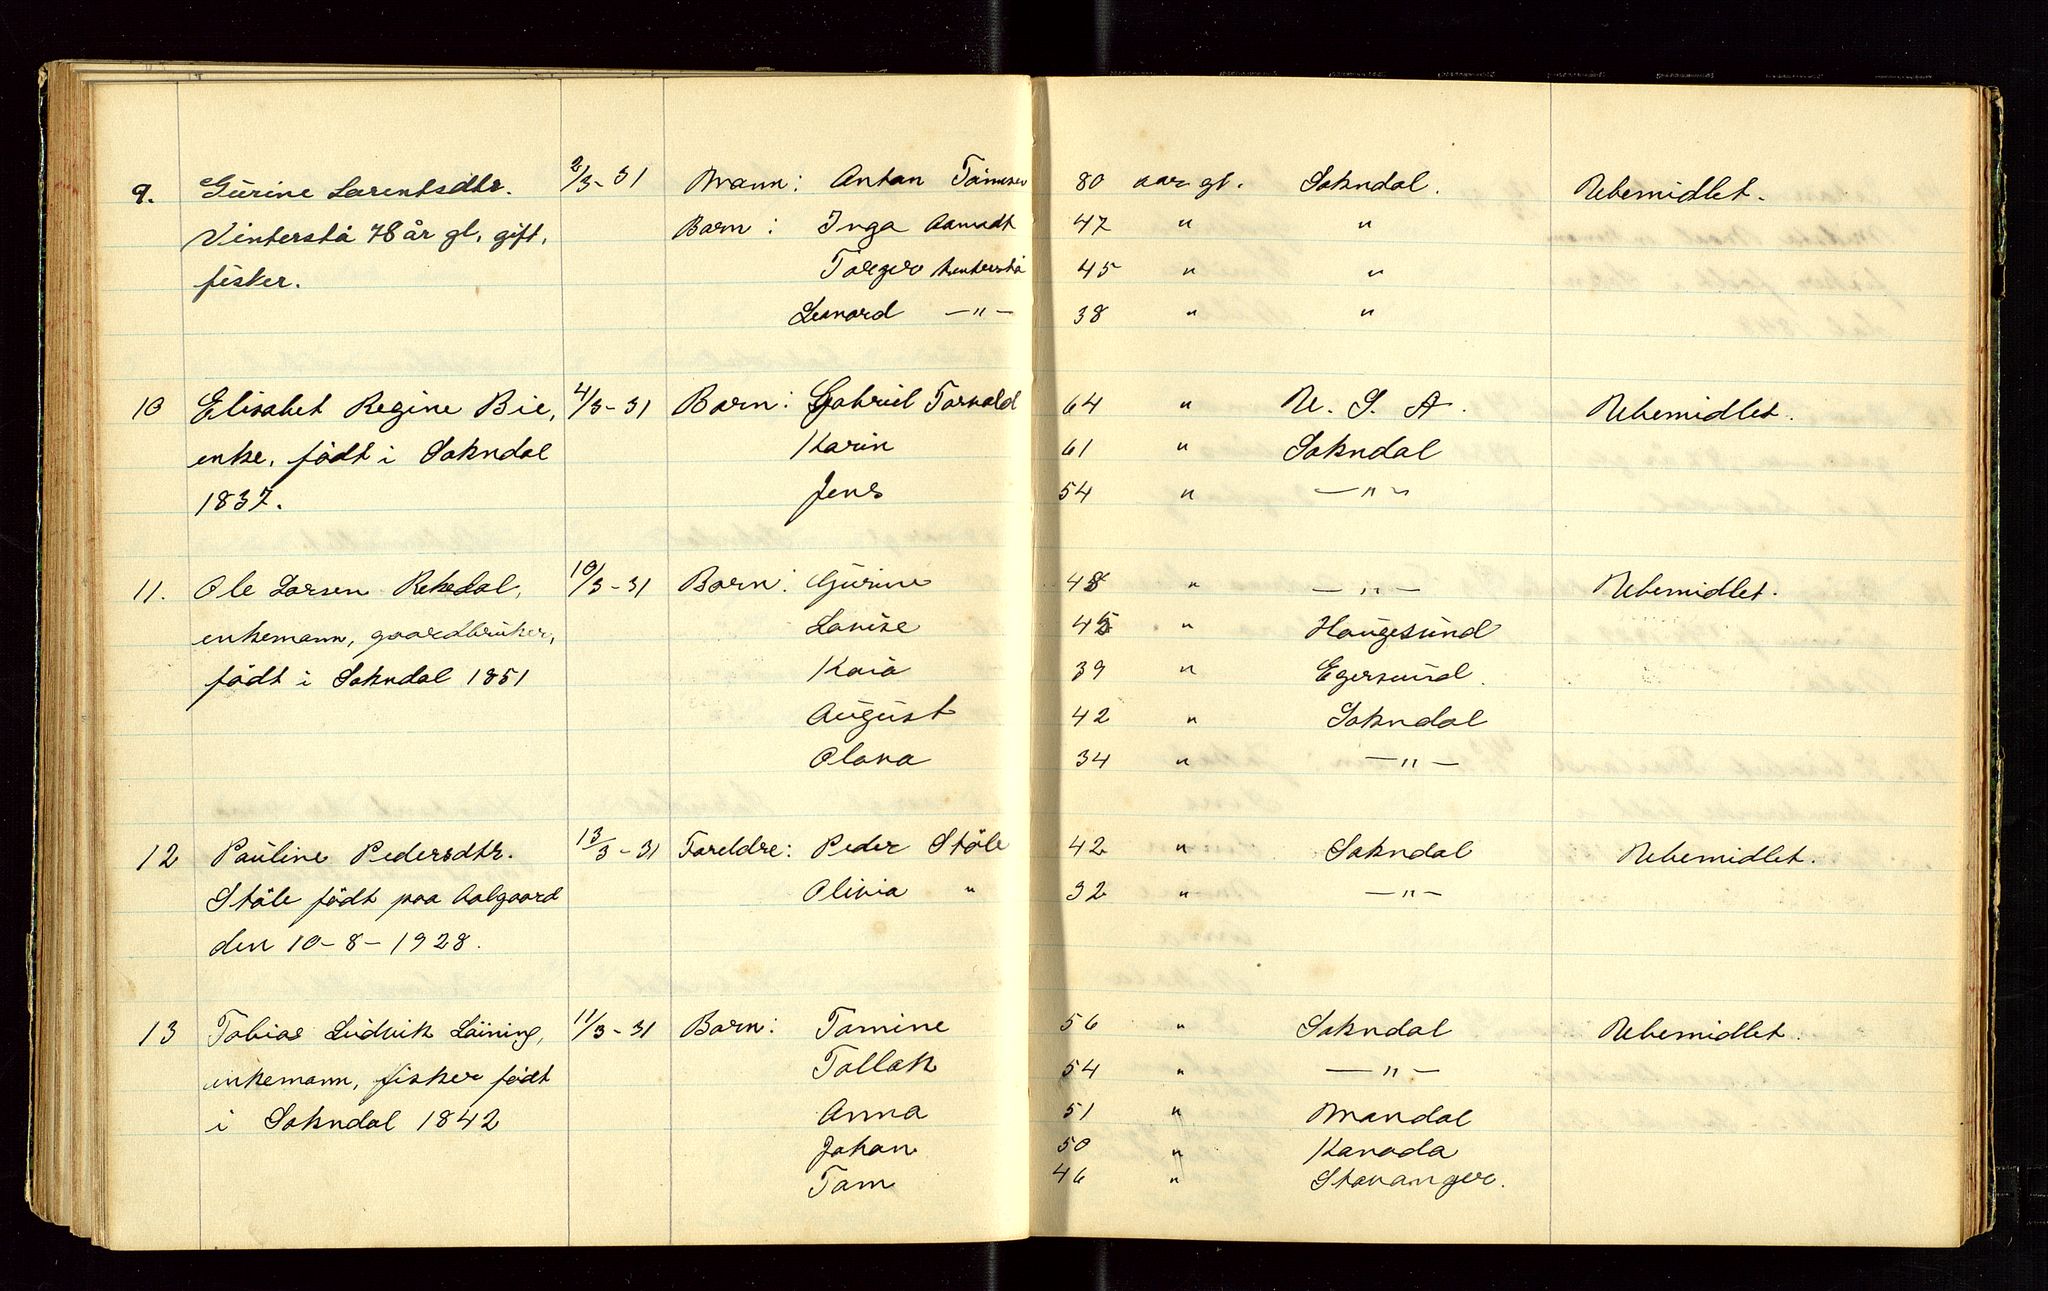 9. Gurine Larentsdtr. 2/3-31 Mann: Anton Tönnesen 80 aar gl. Sokndal. Ubemidlet.
Vinterstø 78 år gl, gift, Barn: Inga Aamodt 47 " "
fisker. Torger Vinterstø 45 " "
Leonard —"— 38 " "
10 Elisabet Regine Bie, 4/3-31 Barn: Gabriel Torvald 64 " U. S. A. Ubemidlet.
enke, födt i Sokndal Karin 61 " Sokndal
1837. Jens 54 " —"—
11. Ole Larsen Rekedal, 10/3-31 Barn: Gurine 48 " —"— Ubemidlet.
enkemann, gaardbruker, Lovise 45 " Haugesund
födt i Sokndal 1851 Kaia 39 " Egersund.
August 42 " Sokndal
Olava 34 " —"—
12 Pauline Pedersdtr. 13/3-31 Foreldre: Peder Stöle 42 " Sokndal Ubemidlet.
Stöle födt paa Aalgaard Olivia " 32 " —"—
den 10-8-1928.
13 Tobias Ludvik Löining, 11/3-31 Barn: Tomine 56 " Sokndal Ubemidlet.
enkemann, fisker födt Tollak 54 " —"—
i Sokndal 1842 Anna 51 " Mandal
Johan 50 " Kanada
Tom 46 " Stavanger.